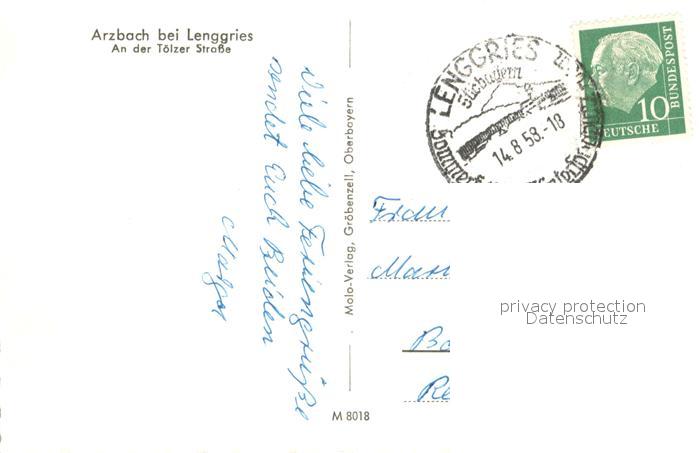 Arzbach bei Lenggries
An der Tölzer Straße
Viele liebe Feriengrüße
sendet Euch Beiden
Margot
Molo-Verlag, Gröbenzell, Oberbayern
M 8018
LENGGRIES
Südbayern
14.8.58.-18
Sommer
10
DEUTSCHE
BUNDESPOST
Frau
privacy protection
Datenschutz